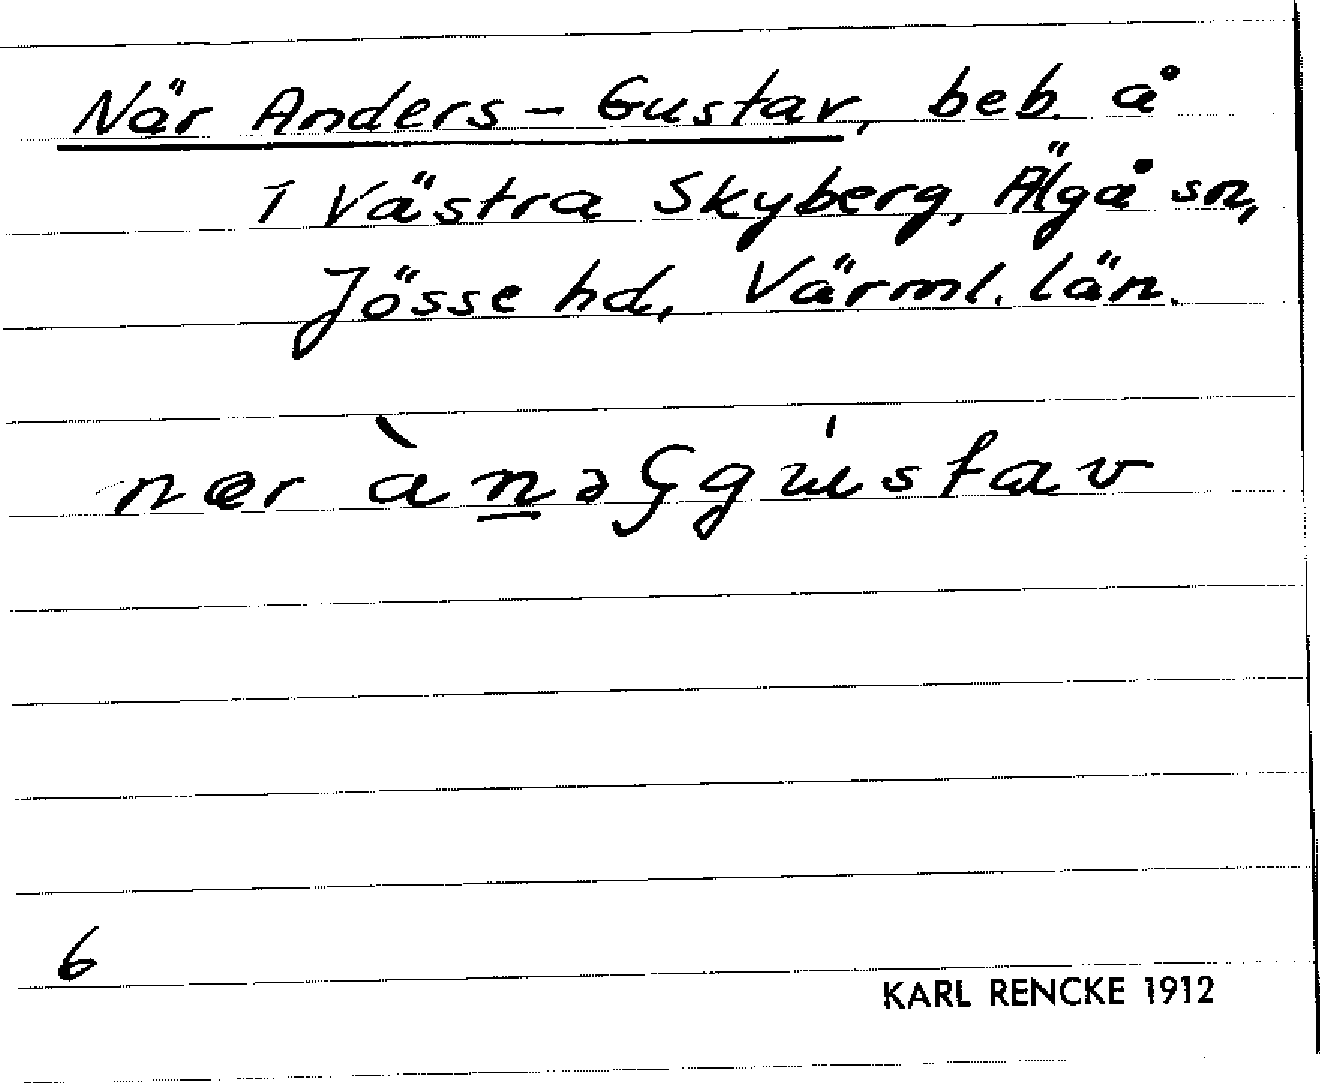 När Anders-Gustav, beb. å
1 Västra Skyberg, Älgå sn,
Jösse hd, Värml. län.
nær àn̲əʂgu̍stav
6
KARL RENCKE 1912